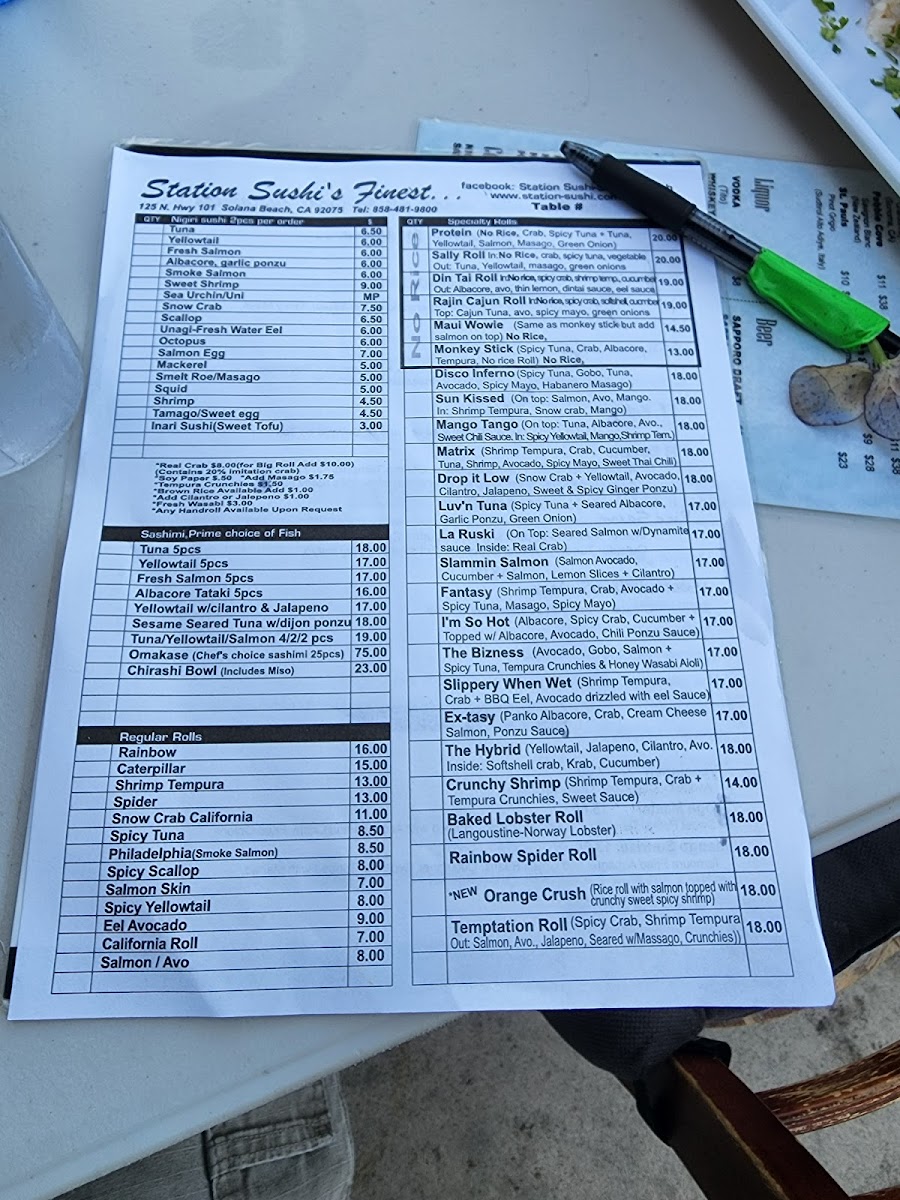 Station Sushi's Finest...
facebook: Station Sushi
www.station-sushi.com
125 N. Hwy 101 Solana Beach, CA 92075 Tel: 858-481-9800
Table #
QTY Nigiri sushi 2pcs per order $
Tuna 6.50
Yellowtail 6.00
Fresh Salmon 6.00
Albacore, garlic ponzu 6.00
Smoke Salmon 6.00
Sweet Shrimp 9.00
Sea Urchin/Uni MP
Snow Crab 7.50
Scallop 6.50
Unagi-Fresh Water Eel 6.00
Octopus 6.00
Salmon Egg 7.00
Mackerel 5.00
Smelt Roe/Masago 5.00
Squid 5.00
Shrimp 4.50
Tamago/Sweet egg 4.50
Inari Sushi(Sweet Tofu) 3.00
*Real Crab $8.00(for Big Roll Add $10.00)
(Contains 20% imitation crab)
*Soy Paper $.50 *Add Masago $1.75
*Tempura Crunchies $1.50
*Brown Rice Available Add $1.00
*Add Cilantro or Jalepeno $1.00
*Fresh Wasabi $3.00
*Any Handroll Available Upon Request
Sashimi,Prime choice of Fish
Tuna 5pcs 18.00
Yellowtail 5pcs 17.00
Fresh Salmon 5pcs 17.00
Albacore Tataki 5pcs 16.00
Yellowtail w/cilantro & Jalapeno 17.00
Sesame Seared Tuna w/dijon ponzu 18.00
Tuna/Yellowtail/Salmon 4/2/2 pcs 19.00
Omakase (Chef's choice sashimi 25pcs) 75.00
Chirashi Bowl (Includes Miso) 23.00
Regular Rolls
Rainbow 16.00
Caterpillar 15.00
Shrimp Tempura 13.00
Spider 13.00
Snow Crab California 11.00
Spicy Tuna 8.50
Philadelphia(Smoke Salmon) 8.50
Spicy Scallop 8.00
Salmon Skin 7.00
Spicy Yellowtail 8.00
Eel Avocado 9.00
California Roll 7.00
Salmon / Avo 8.00
QTY Specialty Rolls
NO RICE
Protein (No Rice, Crab, Spicy Tuna + Tuna, 20.00
Yellowtail, Salmon, Masago, Green Onion)
Sally Roll In:No Rice, crab, spicy tuna, vegetable 20.00
Out: Tuna, Yellowtail, masago, green onions
Din Tai Roll In:No rice, spicy crab, shrimp temp., cucumber 19.00
Out: Albacore, avo, thin lemon, dintai sauce, eel sauce
Rajin Cajun Roll In:No rice, spicy crab, softshell, cucumber 19.00
Top: Cajun Tuna, avo, spicy mayo, green onions
Maui Wowie (Same as monkey stick but add 14.50
salmon on top) No Rice,
Monkey Stick (Spicy Tuna, Crab, Albacore, 13.00
Tempura, No rice Roll) No Rice,
Disco Inferno(Spicy Tuna, Gobo, Tuna, 18.00
Avocado, Spicy Mayo, Habanero Masago)
Sun Kissed (On top: Salmon, Avo, Mango. 18.00
In: Shrimp Tempura, Snow crab, Mango)
Mango Tango (On top: Tuna, Albacore, Avo., 18.00
Sweet Chili Sauce. In: Spicy Yellowtail, Mango,Shrimp Tem.)
Matrix (Shrimp Tempura, Crab, Cucumber, 18.00
Tuna, Shrimp, Avocado, Spicy Mayo, Sweet Thai Chili)
Drop it Low (Snow Crab + Yellowtail, Avocado, 18.00
Cilantro, Jalapeno, Sweet & Spicy Ginger Ponzu)
Luv'n Tuna (Spicy Tuna + Seared Albacore, 17.00
Garlic Ponzu, Green Onion)
La Ruski (On Top: Seared Salmon w/Dynamite 17.00
sauce Inside: Real Crab)
Slammin Salmon (Salmon Avocado, 17.00
Cucumber + Salmon, Lemon Slices + Cilantro)
Fantasy (Shrimp Tempura, Crab, Avocado + 17.00
Spicy Tuna, Masago, Spicy Mayo)
I'm So Hot (Albacore, Spicy Crab, Cucumber + 17.00
Topped w/ Albacore, Avocado, Chili Ponzu Sauce)
The Bizness (Avocado, Gobo, Salmon + 17.00
Spicy Tuna, Tempura Crunchies & Honey Wasabi Aloli)
Slippery When Wet (Shrimp Tempura, 17.00
Crab + BBQ Eel, Avocado drizzled with eel Sauce)
Ex-tasy (Panko Albacore, Crab, Cream Cheese 17.00
Salmon, Ponzu Sauce)
The Hybrid (Yellowtail, Jalapeno, Cilantro, Avo. 18.00
Inside: Softshell crab, Krab, Cucumber)
Crunchy Shrimp (Shrimp Tempura, Crab + 14.00
Tempura Crunchies, Sweet Sauce)
Baked Lobster Roll 18.00
(Langoustine-Norway Lobster)
Rainbow Spider Roll 18.00
*NEW Orange Crush (Rice roll with salmon topped with 18.00
crunchy sweet spicy shrimp)
Temptation Roll (Spicy Crab, Shrimp Tempura 18.00
Out: Salmon, Avo., Jalapeno, Seared w/Massago, Crunchies))
Liquor
VODKA
(Tito)
WHISKEY
$8
Beer
SAPPORO DRAFT
Pebble Cove
$11 $38
St. Pauls
Pinot Grigio
(Sudtirol Alto Adige, Italy)
$10
$9
$28
$23
$11 $38